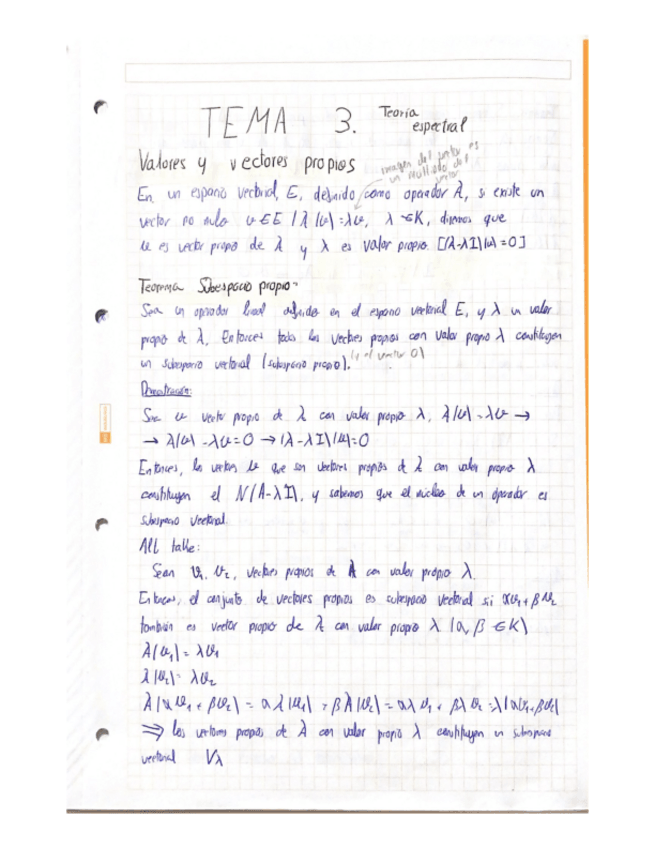 TEMA 3. Teoría espectral
Valores y vectores propios
imagen del vector es un múltiplo del vector
En un espacio vectorial, E, definido como operador A, si existe un
vector no nulo v ∈ E / A(v) = λv, λ ∈ K, diremos que
v es vector propio de A y λ es valor propio. [(A-λI)(v)=0]
Teorema Subespacio propio:
Sea un operador lineal definido en el espacio vectorial E, y λ un valor
propio de A. Entonces todos los vectores propios con valor propio λ constituyen
un subespacio vectorial (subespacio propio). (y el vector 0)
Demostración:
Sea v vector propio de A con valor propio λ, A(v) = λv →
→ A(v) - λv = 0 → (A - λI)(v) = 0
Entonces, los vectores v que son vectores propios de A con valor propio λ
constituyen el N(A-λI), y sabemos que el núcleo de un operador es
subespacio vectorial.
All talle:
Sean v₁, v₂, vectores propios de A con valor propio λ.
Entonces, el conjunto de vectores propios es subespacio vectorial si αv₁ + βv₂
también es vector propio de A con valor propio λ (α, β ∈ K)
A(v₁) = λv₁
A(v₂) = λv₂
A(αv₁ + βv₂) = αA(v₁) + βA(v₂) = αλv₁ + βλv₂ = λ(αv₁+βv₂)
⟹ los vectores propios de A con valor propio λ constituyen un subespacio
vectorial Vλ